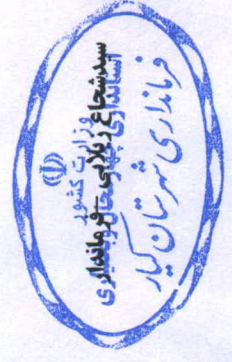 وزارت کشور
استانداری چهارمحال و بختیاری
فرمانداری شهرستان کیار
سیدشجاع زیلابی - فرماندار